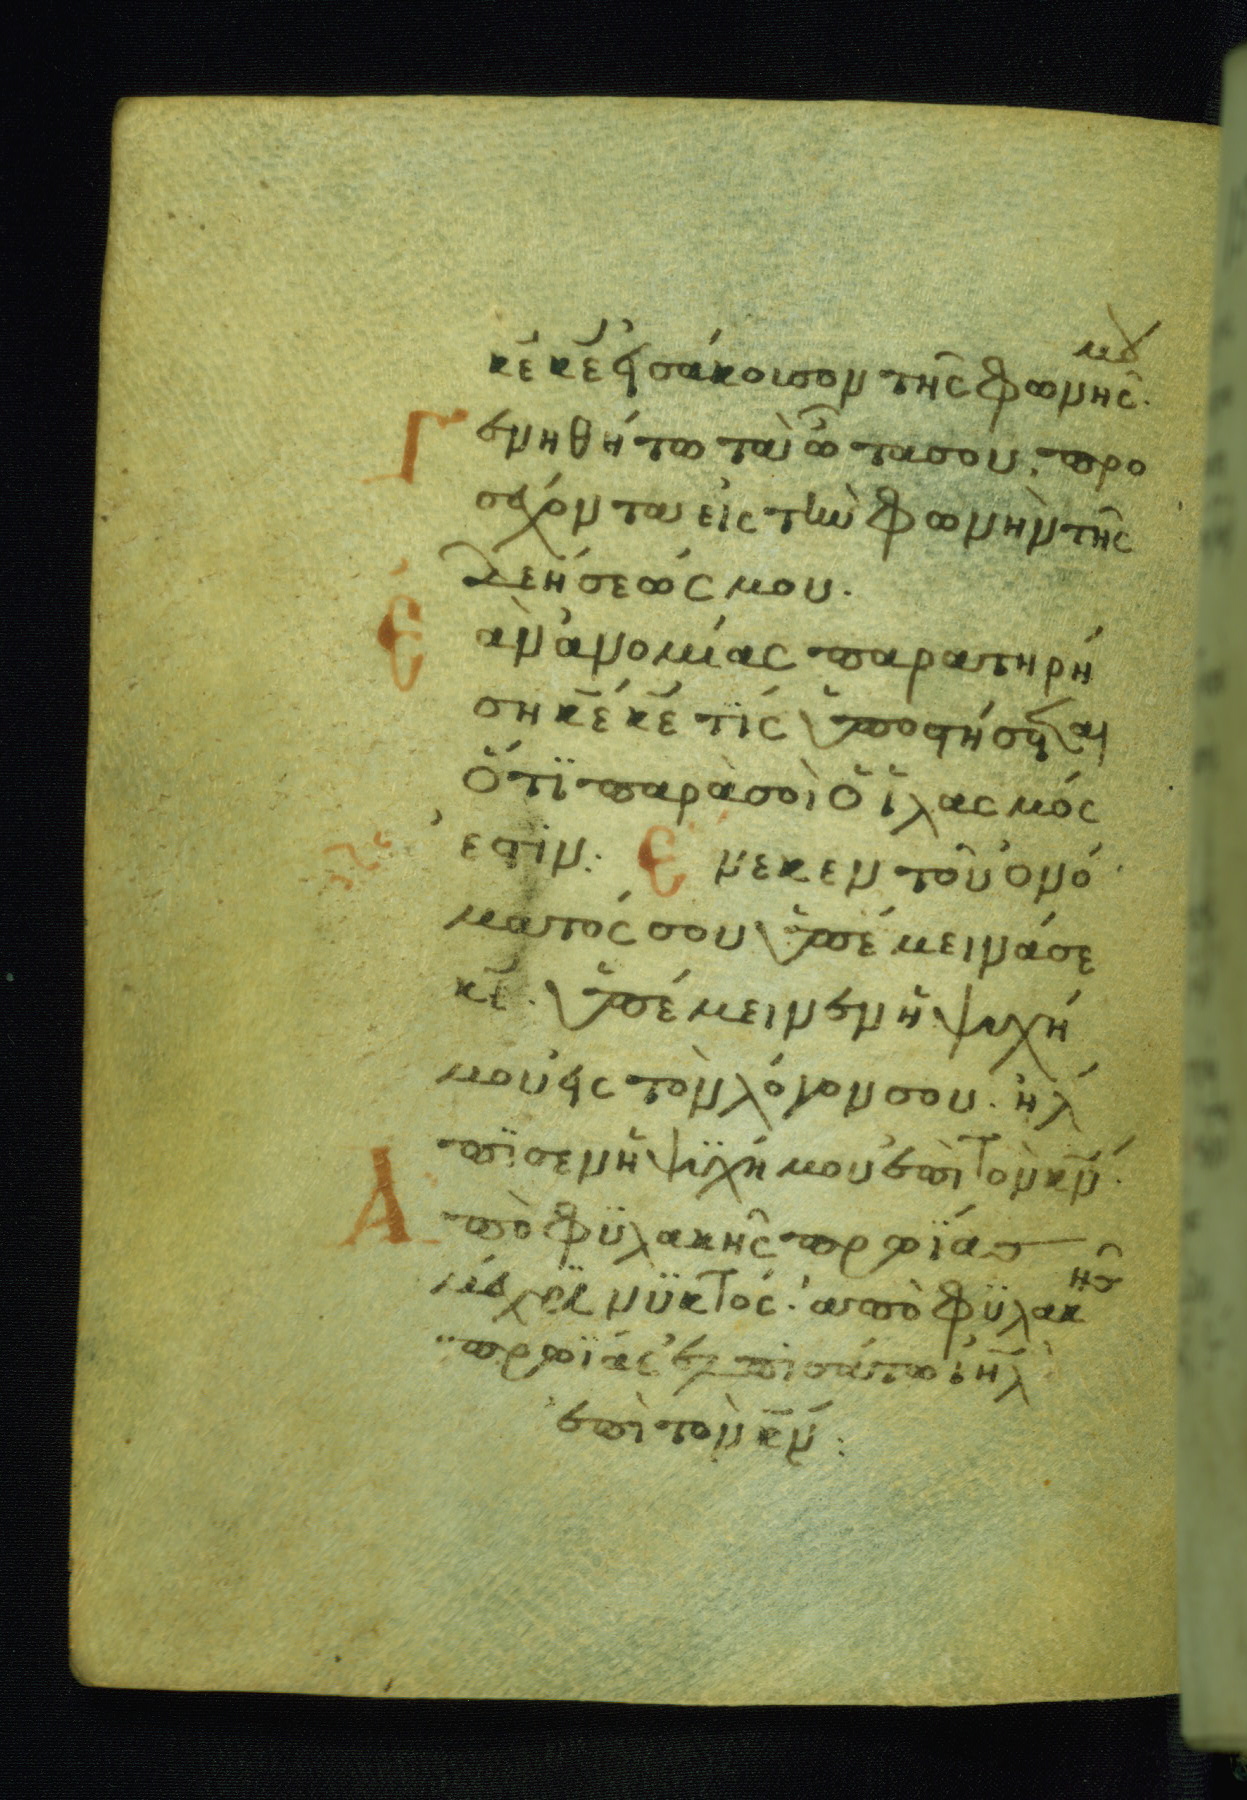 κε̄ κε̄ εἰσάκουσον τῆς φωνῆς μου.
Γενηθήτω τὰ ὦτα σου, προ
σέχοντα εἰς τὴν φωνὴν τῆς
δεήσεώς μου.
Ἐὰν ἀνομίας παρατηρή
ση κε̄ κε̄ τίς ὑποστήσεται
ὅτϊ παρὰ σοὶ ὁ ἱλασμός
ἐστϊν: Ἕνεκεν τοῦ ὀνό
ματός σου ὑπέμεινά σε
κε̄. ὑπέμεινεν ἡ ψυχή
μου εἰς τὸν λόγον σου. ἤλ
πϊσεν ἡ ψϋχή μου ἐπὶ τὸν κν̄.
Ἀπὸ φϋλακῆς πρωΐας
μέχρϊ νϋκτός. ἀπὸ φϋλακῆς
πρωΐας ἐλπισάτω ιηλ̄
ἐπὶ τὸν κν̄: